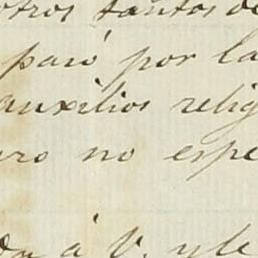 otros tantos de
pasó por la
auxilios relig
aro no espe
á V. y le